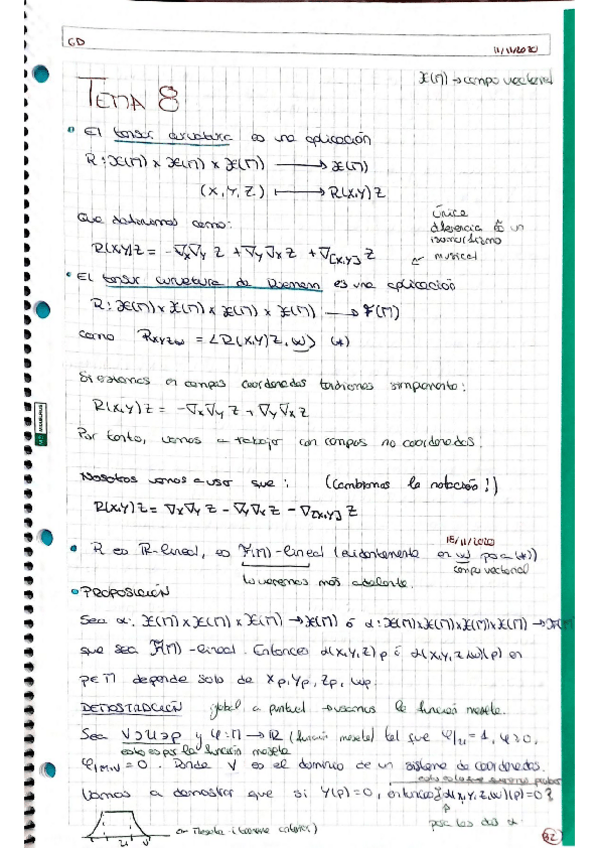 GD
11/11/2020
𝔛(M) → campo vectorial
TEMA 8
• El tensor curvatura es una aplicación
R: 𝔛(M) × 𝔛(M) × 𝔛(M) ⟶ 𝔛(M)
(X, Y, Z) ⟼ R(X,Y)Z
Que definimos como:
única diferencia es un isomorfismo musical
R(X,Y)Z = -∇x∇y Z + ∇y∇x Z + ∇[X,Y] Z
• El tensor curvatura de Riemann es una aplicación
R: 𝔛(M) × 𝔛(M) × 𝔛(M) × 𝔛(M) ⟶ F(M)
como Rxyzw = <R(X,Y)Z, W> (*)
Si estamos en campos coordenados tendríamos simplemente:
R(X,Y)Z = -∇x∇y Z + ∇y∇x Z
Por tanto, vamos a trabajar con campos no coordenados.
Nosotros vamos a usar que: (Cambiamos la notación!)
R(X,Y)Z = ∇x∇y Z - ∇y∇x Z - ∇[X,Y] Z
15/11/2020
• R es R-lineal, es F(M)-lineal (evidentemente en W por (*))
campo vectorial
lo veremos más adelante.
• PROPOSICIÓN
Sea α: 𝔛(M) × 𝔛(M) × 𝔛(M) → 𝔛(M) ó α: 𝔛(M)×𝔛(M)×𝔛(M)×𝔛(M) → F(M)
que sea F(M)-lineal. Entonces α(X,Y,Z)p ó α(X,Y,Z,W)(p) en
p∈M depende solo de Xp, Yp, Zp, Wp.
DEMOSTRACIÓN global a puntual → usamos la función meseta.
Sea V⊃U∋p y φ: M → R (función meseta) tal que φ|u = 1, φ≥0,
esto es por la función meseta
φ|M\V = 0. Donde V es el dominio de un sistema de coordenadas.
Vamos a demostrar que si Y(p)=0, entonces α(X,Y,Z,W)(p)=0?
p
para los dos α.
U V
← Meseta
32